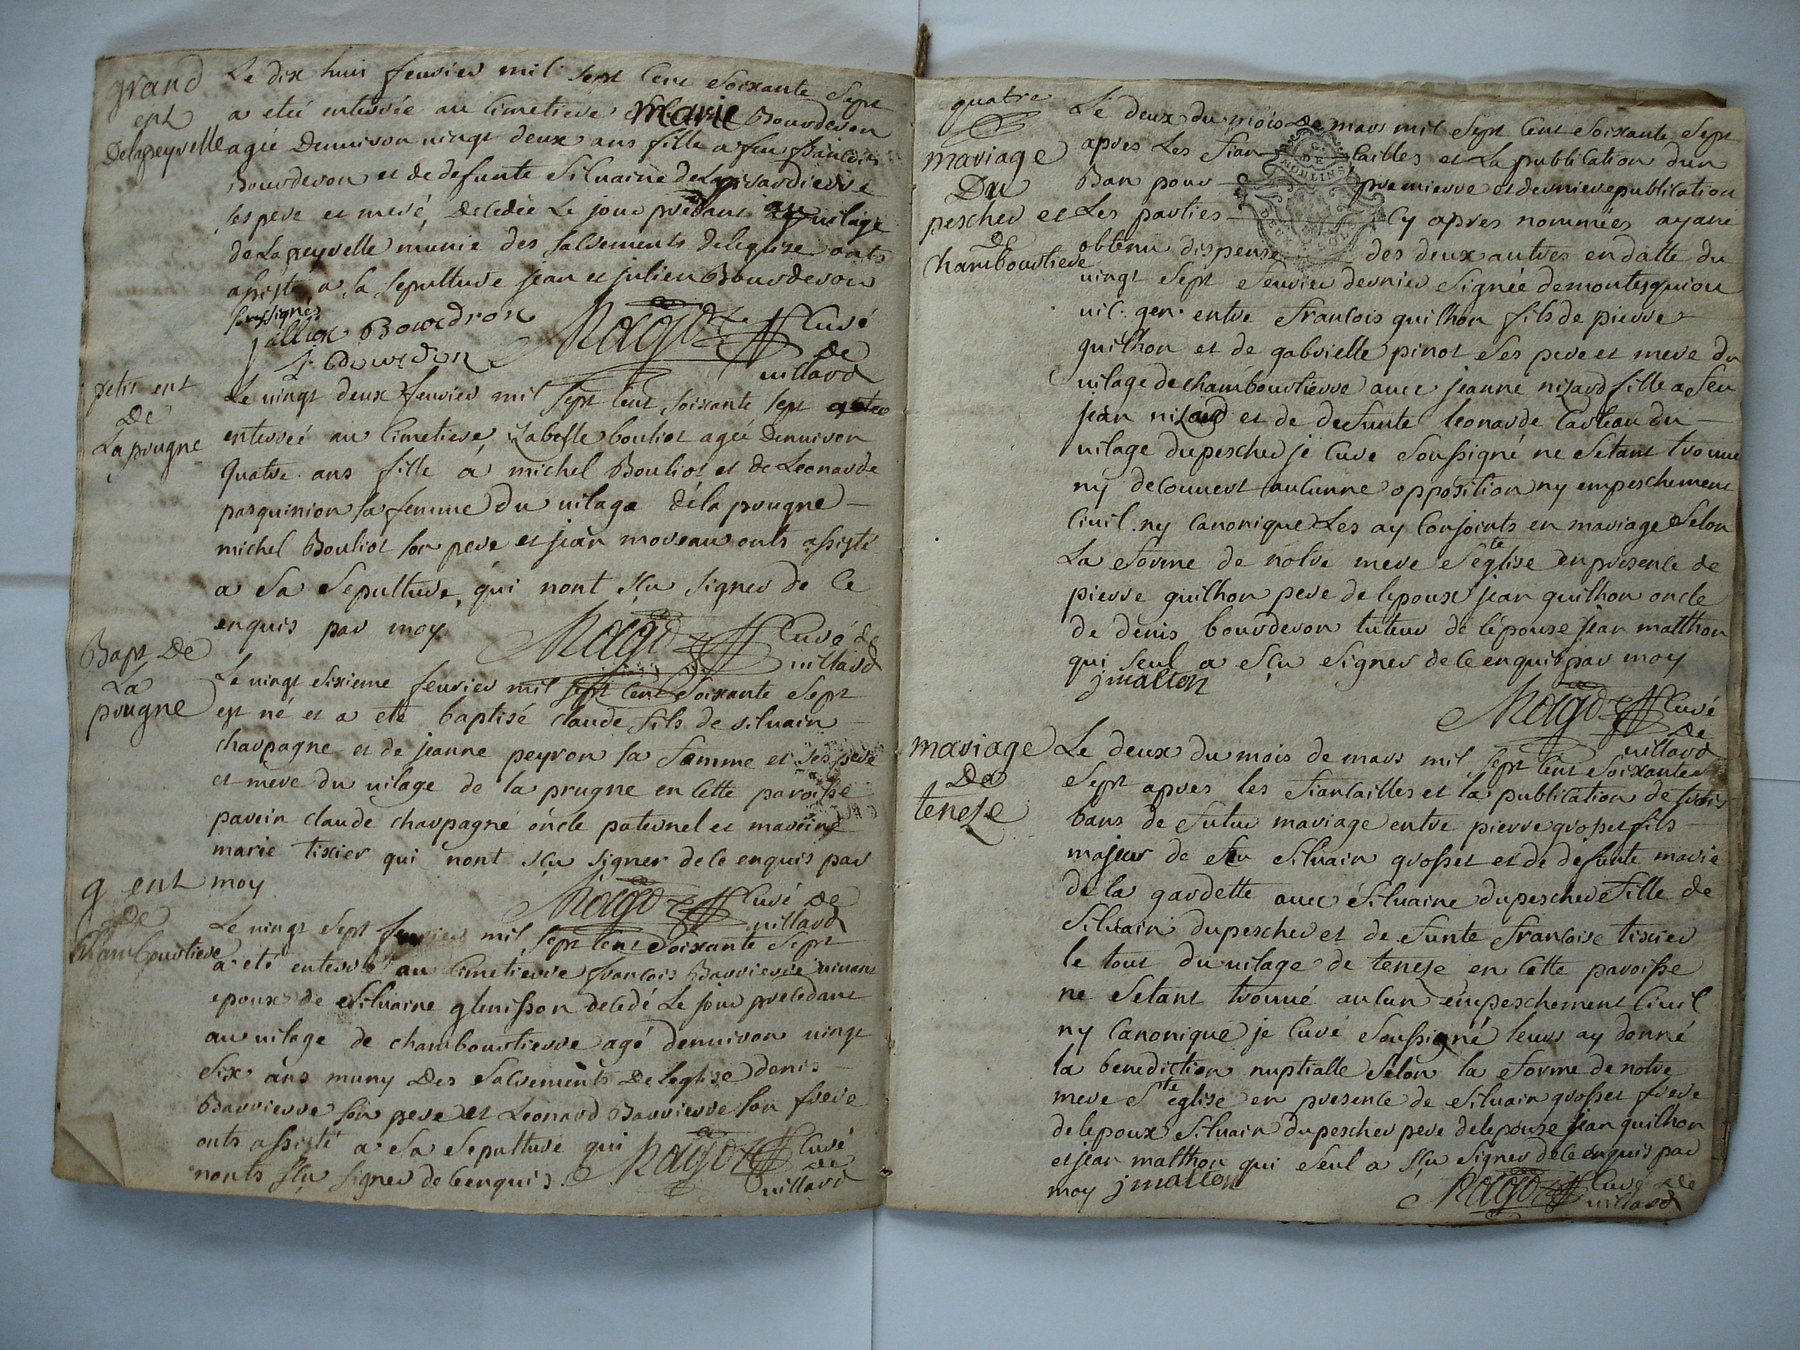 grand
ent
Delapeyrelle
Le dix huit feuvier mil sept Cent Soixante Sept
a eteé enterrée au Cimetiere Marie Bourderon
agée denviron vingt deux ans fille a feu françois
Bourderon et de defunte Silvaine de
ses pere et meré, decedée Le jour précédant au vilage
de Lapeyrelle munie des Sacrements deleglise onts
assisté a sa sepulture jean et julien Bourderon
soussignés
jullien Bourdron
j. Bourdon
Curé
de
villard
petit ent
de
La prugne
Le vingt deux feuvier mil sept Cent soixante sept a etee
enterreé au Cimetiere izabelle bouliot agée denviron
quatre ans fille á michel Bouliot et de Leonarde
pasquinion sa femme du vilage déla prugne
michel Bouliot son pere et jean moreau onts assisté
a Sa Sepulture, qui nont sçu signer de Ce
enquis par moy.
Curé de
villard
Bapt De
La
prugne
Le vingt sixieme feuvier mil sept Cent Soixante Sept
est né et a eté baptisé claude fils de silvain
charpagne et de jeanne peyron sa femme et ses pere
et mere du vilage de la prugne en Cette paroisse
parein claude charpagne oncle paternel et mareine
marie tixier qui nont sçu signer de Ce enquis par
moy
Curé de
villard
g ent
de
Chambourtiere
Le vingt sept feuvier mil sept Cent Soixante Sept
a eté enterré au Cimetierre françois Barrierre vivant
epoux de Silvaine glenisson decedé Le jour precedant
au vilage de chambourtierre agé denviron vingt
six ans muny des Sacrements De Leglise denis
Barrierre son pere et Leonard Barrierre son frere
onts assisté a Sa Sepulture qui
nonts sçu signer de Ce enquis.
Curé
de
villard
quatre
mariage
Du
pescher et
de
chambourtiere
Le deux du mois de mars mil Sept Cent Soixante Sept
apres Les fiancailles et La publication dun
Ban pour premierre et dernierre publication
Les parties Cy apres nommées ayant
obtenu dispense des deux autres en datte du
vingt Sept feuvier dernier Signée demontesquiou
vic. gen. entre francois guilhon fils de pierre
guilhon et de gabrielle pinot Ses pere et mere du
vilage de chambourtierre avec jeanne nizard fille a feu
jean nizard et de defunte leonarde du
vilage dupescher je Curé Soussigné ne Setant trouvé
ny decouvert aucunne opposition ny empeschement
Civil ny Canonique Les ay Conjoints en mariage Selon
La forme de notre mere Ste eglise en presence de
pierre guilhon pere de lepoux jean guilhon oncle
de denis bourderon tuteur de lepouse jean matthon
qui seul a sçu signer de Ce enquis par moy
jmatton
Curé
de
villard
mariage
De
teneze
Le deux du mois de mars mil sept Cent Soixante
Sept apres les fiancailles et la publication de trois
bans de futur mariage entre pierre grosset fils
majeur de feu Silvain grosset et de defunte marie
de la gardette avec Silvaine dupescher fille de
Silvain dupescher et de funte francoise tixier
le tout du vilage de teneze en Cette paroisse
ne Setant trouvé aucun émpeschement Civil
ny Canonique je Curé Soussigné leurs ay donné
la benediction nuptialle Selon la forme de notre
mere Ste eglise en presence de Silvain grosset frere
de lepoux Silvain dupescher pere de lepouse jean guilhon
et jean matthon qui Seul a sçu signer de Ce enquis par
moy jmatton
Curé de
villard